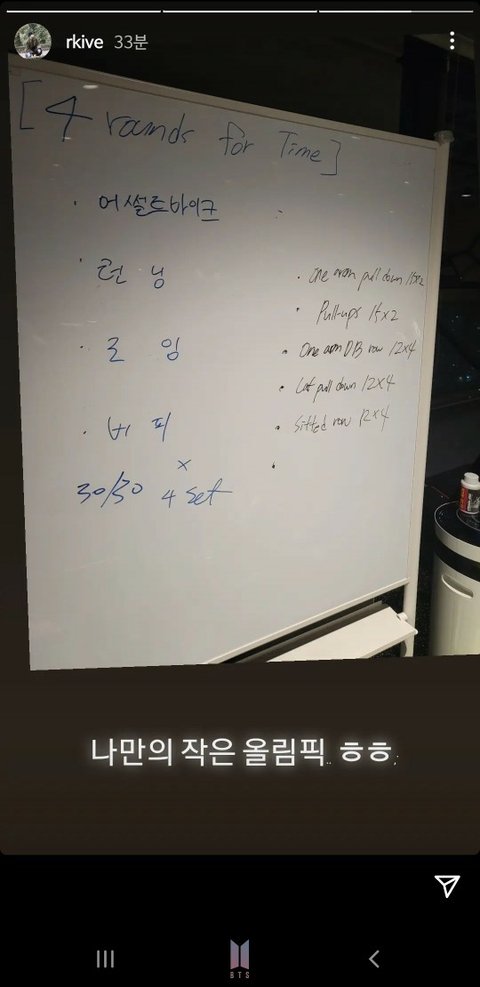 rkive 33분
[4 rounds for Time]
· 어썰트바이크
· 런닝
· 로잉
· 버피
×
30/30 4 set
· One arm pull down 15x2
· Pull-ups 15x2
· One arm DB row 12x4
· Lat pull down 12x4
· Sitted row 12x4
나만의 작은 올림픽.. ㅎㅎ
BTS